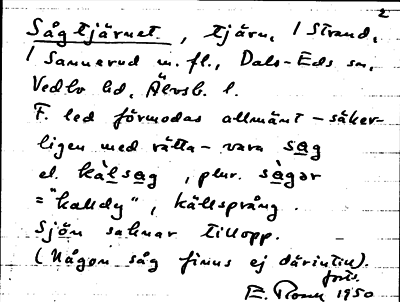 2
Sågtjärnet , tjärn, i Strand,
i Sannerud m. fl., Dals-Eds sn,
Vedbo hd, Älvsb. l.
F. led förmodas allmänt – säker-
ligen med rätta – vara sag
el. kàlsag , plur. sàgar
= "kalldy" , källsprång.
Sjön saknar tillopp.
(Någon såg finns ej därintill).
forts.
E. 1950